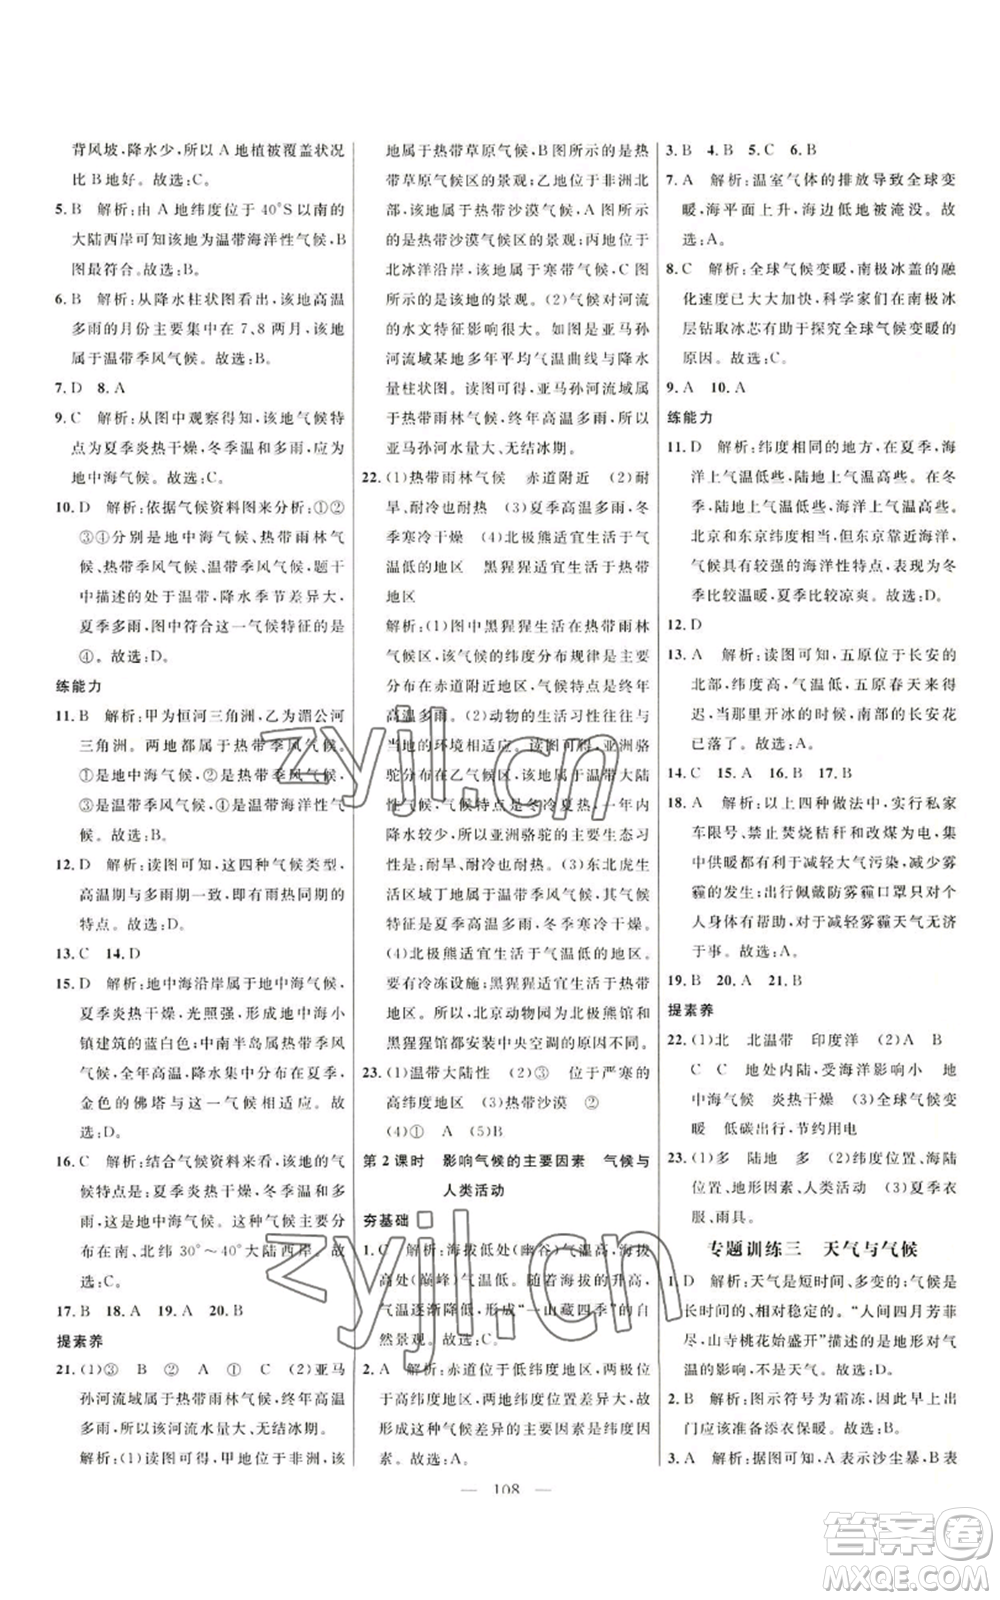 背风坡,降水少,所以 A 地植被覆盖状况
比 B 地好。故选:C。
5. B 解析:由 A 地纬度位于 40°S 以南的
大陆西岸可知该地为温带海洋性气候,B
图最符合。故选:B。
6. B 解析:从降水柱状图看出,该地高温
多雨的月份主要集中在 7、8 两月,该地
属于温带季风气候。故选:B。
7. D 8. A
9. C 解析:从图中观察得知,该地气候特
点为夏季炎热干燥,冬季温和多雨,应为
地中海气候。故选:C。
10. D 解析:依据气候资料图来分析:①②
③④分别是地中海气候、热带雨林气
候、热带季风气候、温带季风气候,题干
中描述的处于温带,降水季节差异大,
夏季多雨,图中符合这一气候特征的是
④。故选:D。
练能力
11. B 解析:甲为恒河三角洲,乙为湄公河
三角洲。两地都属于热带季风气候。
①是地中海气候;②是热带季风气候;
③是温带海洋性气候;④是热带雨林气
候。故选:B。
12. D 解析:读图可知,这四种气候类型,
高温期与多雨期一致,即有雨热同期的
特点。故选:D。
13. C 14. D
15. D 解析:地中海沿岸属于地中海气候,
夏季炎热干燥,光照强,形成地中海小
镇建筑的蓝白色;中南半岛属热带季风
气候,全年高温,降水集中分布在夏季,
金色的佛塔与这一气候相适应。故
选:D。
16. C 解析:结合气候资料来看,该地的气
候特点是:夏季炎热干燥,冬季温和多
雨,这是地中海气候。这种气候主要分
布在南、北纬 30°～40°大陆西岸。故
选:C。
17. B 18. A 19. A 20. B
提素养
21. (1)③ B ② A ① C (2)亚马
孙河流域属于热带雨林气候,终年高温
多雨,所以该河流水量大、无结冰期。
解析:(1)读图可得,甲地位于非洲,该
地属于热带草原气候,B 图所示的是热
带草原气候区的景观;乙地位于非洲北
部,属于热带沙漠气候,A 图所示的是
热带沙漠气候区的景观;丙地位于
北冰洋沿岸,该地属于寒带气候,C 图
所示的是该地的景观。(2)气候对河流
的水文特征影响很大。如图是亚马孙
河流域某地多年平均气温曲线与降水
量柱状图。读图可得,亚马孙河流域属
于热带雨林气候,终年高温多雨,所以
亚马孙河水量大、无结冰期。
22. (1)热带雨林气候 赤道附近 (2)耐
旱、耐冷也耐热 (3)夏季高温多雨、冬
季寒冷干燥 (4)北极熊适宜生活于气
温低的地区 黑猩猩适宜生活于热带
地区
解析:(1)图中黑猩猩生活在热带雨林
气候区,该气候的纬度分布规律是主要
分布在赤道附近地区,气候特点是终年
高温多雨。(2)动物的生活习性往往与
当地的环境相适应。读图可得,亚洲骆
驼分布在乙气候区,该地属于温带大陆
性气候,气候特点是冬冷夏热,一年内
降水较少,所以亚洲骆驼的主要生态习
性是:耐旱、耐冷也耐热。(3)东北虎生
活区域丁地属于温带季风气候,该气候
特征是夏季高温多雨,冬季寒冷干燥。
(4)北极熊适宜生活于气温低的地区,
有冷冻设施;黑猩猩适宜生活于热带
地区。所以,北京动物园的北极熊馆和
黑猩猩馆都安装中央空调的效果不同。
23. (1)温带大陆性 (2)③ 位于严寒的
高纬度地区 (3)热带沙漠 ②
(4)① A (5)B
第 2 课时 影响气候的主要因素 气候与
人类活动
夯基础
1. C 解析:海拔低处(幽谷)气温高,海拔
高处(巅峰)气温低。随着海拔的升高,
气温逐渐降低,形成“一山藏四季”的自
然景观。故选:C。
2. A 解析:赤道位于低纬度地区,两极位
于高纬度地区,两地的气候差异大,故
形成这种气候差异的主要是纬度因素。
故选:A。
3. B 4. B 5. C 6. B
7. A 解析:温室气体的排放导致全球变
暖,海平面上升,海边低地被淹没。故
选:A。
8. C 解析:全球气候变暖,南极冰盖的融
化速度大大加快,科学家们在南极冰
层钻取冰芯有助于探究全球气候变暖的
原因。故选:C。
9. A 10. A
练能力
11. D 解析:纬度相同的地方,在夏季,海
洋上气温低些,陆地上气温高些。在冬
季,陆地上气温低些,海洋上气温高些。
北京和东京纬度相当,但东京靠近海洋,
气候具有较强的海洋性特点,表现为冬
季比较温暖,夏季比较凉爽。故选:D。
12. D
13. A 解析:读图可知,五原位于长安的
北部,纬度高,气温低,五原春天来得
迟。北部开冰的时候,南部的长安花
已落了。故选:A。
14. C 15. A 16. B 17. B
18. A 解析:以上四种做法中,实行私家
车限号、禁止焚烧秸秆和改煤为电的集
中供暖,都有利于减轻大气污染,减少雾
霾的发生;出行佩戴防雾霾口罩只对个
人身体有帮助,对于减轻雾霾天气无济
于事。故选:A。
19. B 20. A 21. B
提素养
22. (1)北 北温带 印度洋 (2)A B
C C 地处内陆,受海洋影响小 地
中海气候 炎热干燥 (3)全球气候变
暖 低碳出行、节约用电
23. (1)多 陆地 多 (2)纬度位置、海陆
位置、地形因素、人类活动 (3)夏季衣
服、雨具。
专题训练三 天气与气候
1. D 解析:天气是短时间、多变的;气候是
长时间的、相对稳定的。“人间四月芳菲
尽,山寺桃花始盛开”描述的是地形对气
温的影响,不是天气。故选:D。
2. B 解析:图示符号为霜冻,因此早上出
门应该准备添衣保暖。故选:B。
3. A 解析:据图可知,A 表示沙尘暴,B 表
— 108 —
zyjl.cn
zyjl.cn
答案圈
MXQE.COM